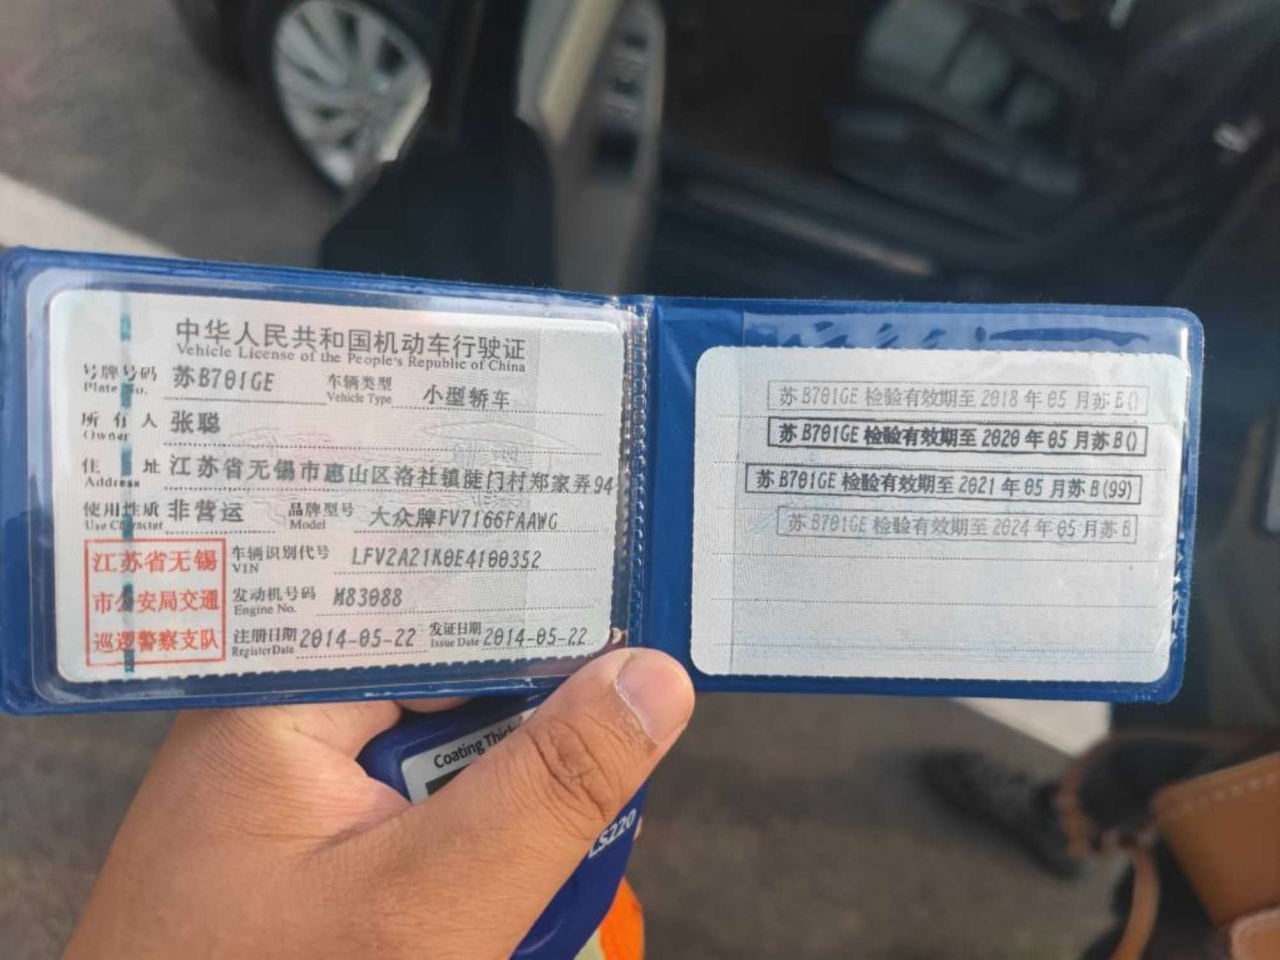 中华人民共和国机动车行驶证
Vehicle License of the People's Republic of China
号牌号码 苏B701GE 车辆类型 小型轿车
Plate No. Vehicle Type
所有人 张聪
Owner
住址 江苏省无锡市惠山区洛社镇陡门村郑家弄94
Address
使用性质 非营运 品牌型号 大众牌FV7166FAAWG
Use Character Model
江苏省无锡
市公安局交通
巡逻警察支队
车辆识别代号 LFV2A21K0E4100352
VIN
发动机号码 M83088
Engine No.
注册日期 2014-05-22 发证日期 2014-05-22
Register Date Issue Date
苏B701GE 检验有效期至2018年05月苏B()
苏B701GE 检验有效期至2020年05月苏B()
苏B701GE 检验有效期至2021年05月苏B(99)
苏B701GE 检验有效期至2024年05月苏B
Coating
LS220